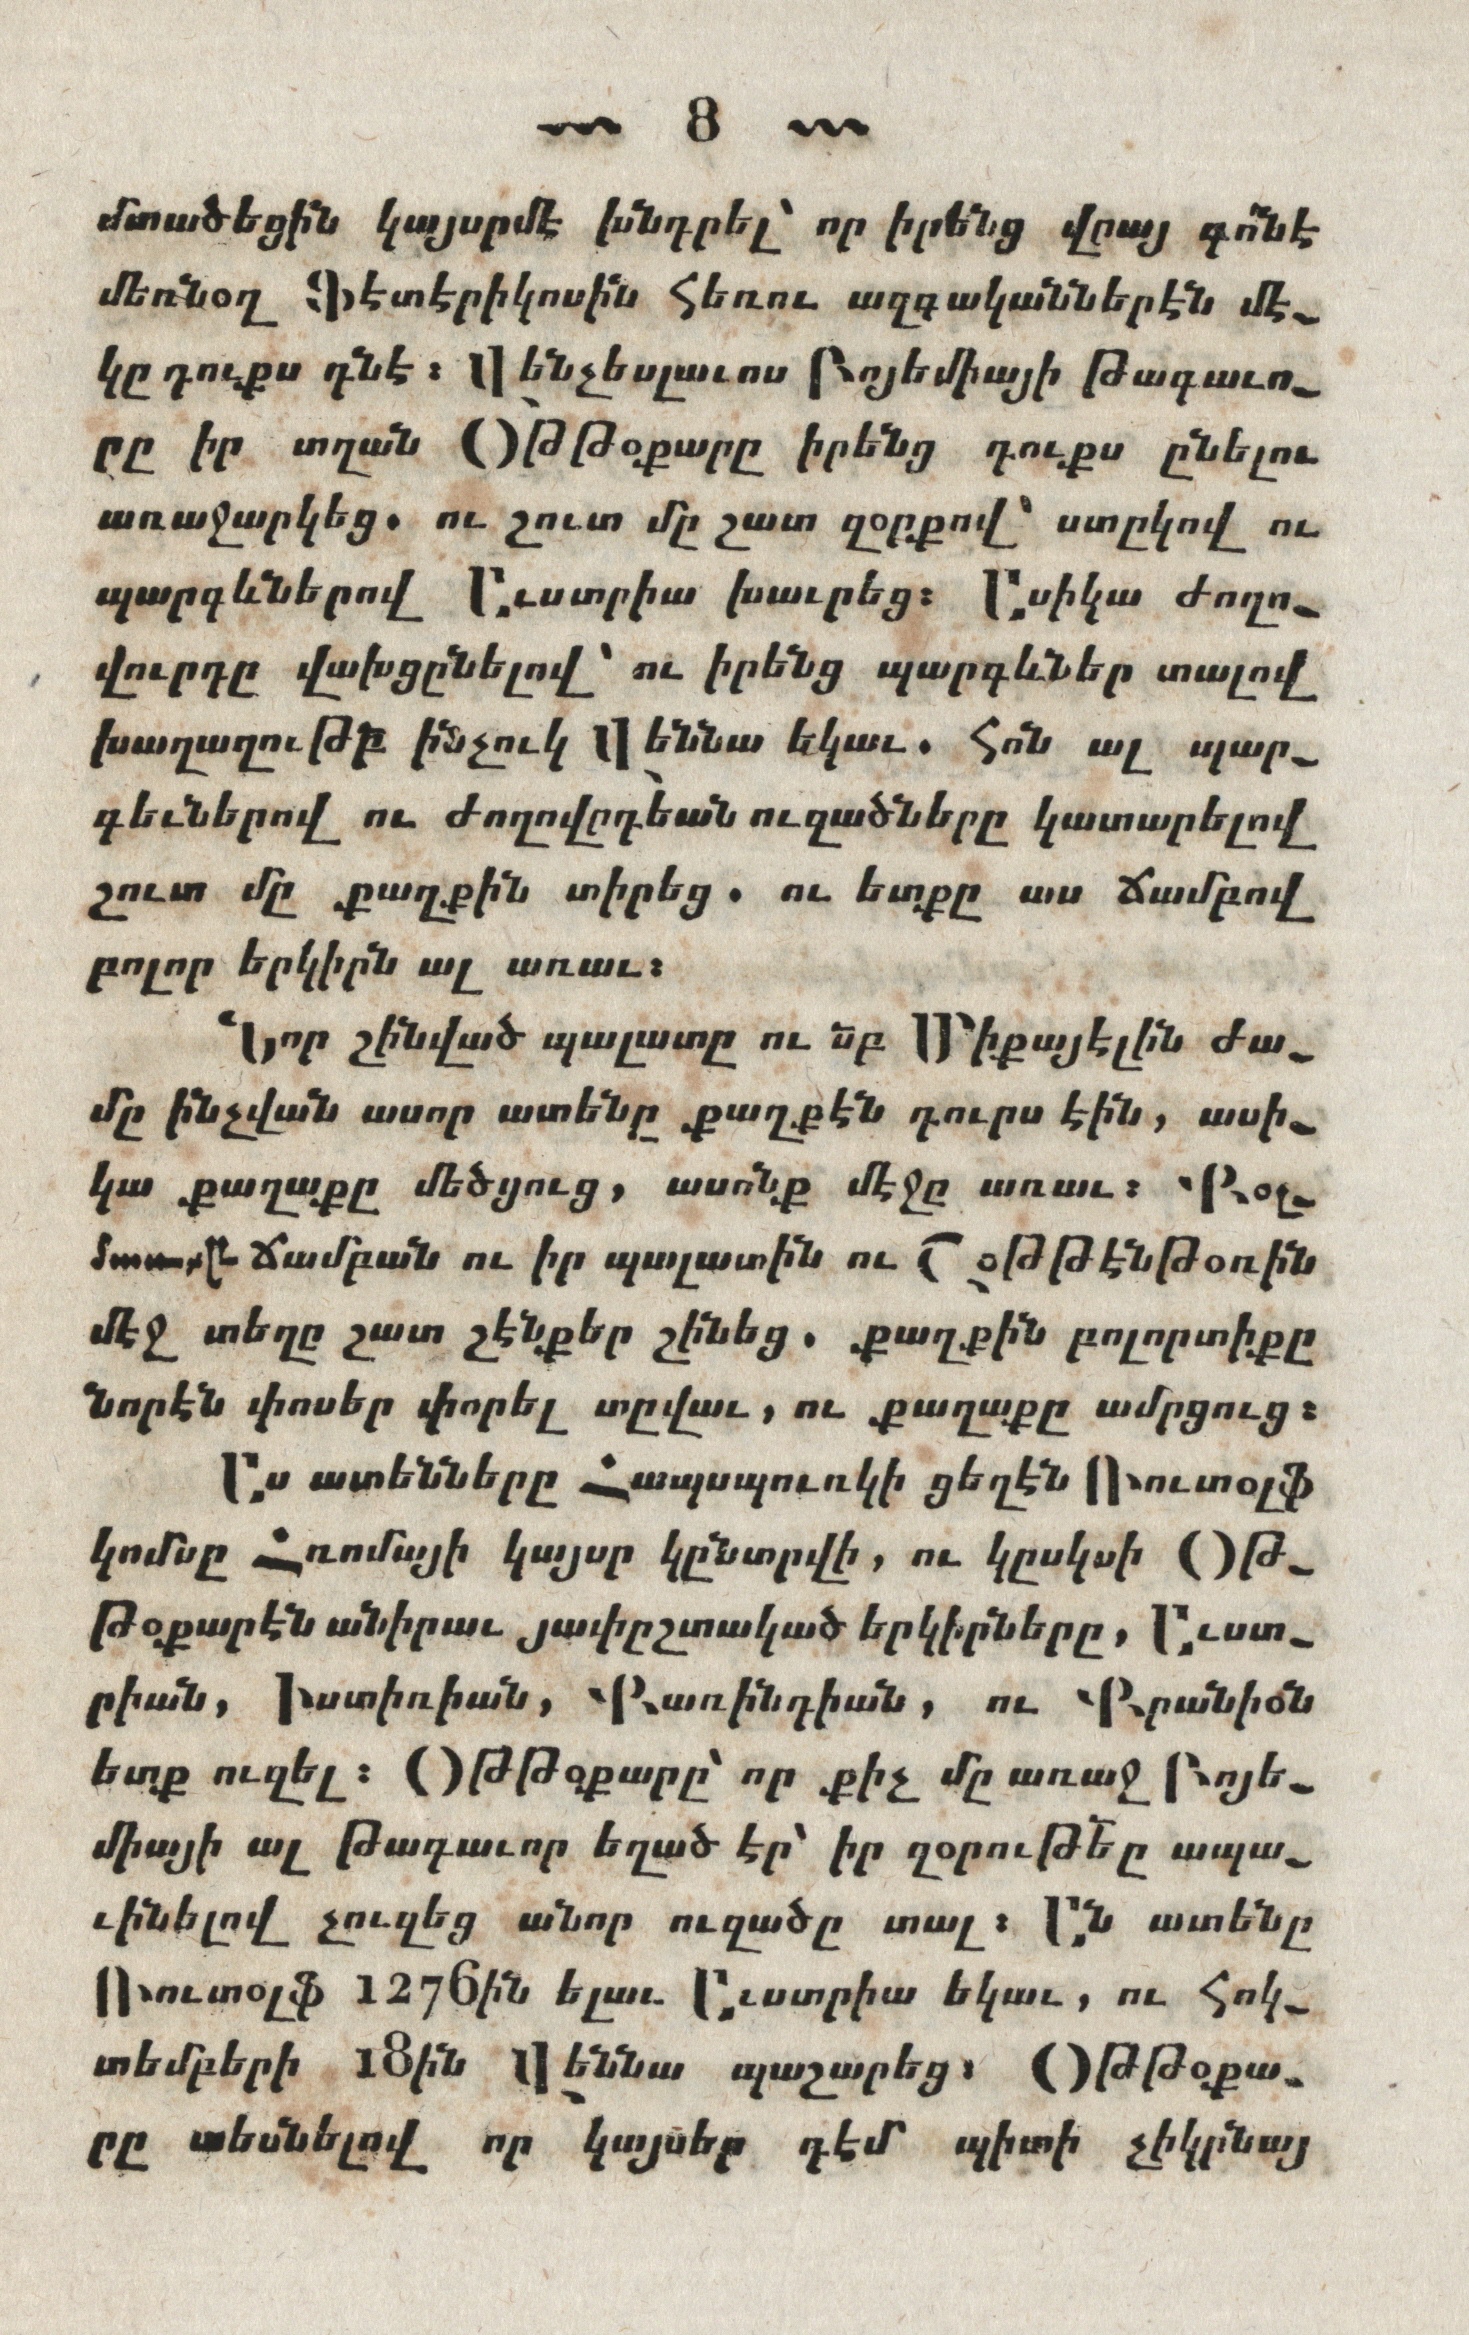 8
մտածեցին կայսրմէ խնդրել՝ որ իրենց վըայ գո՞նէ
մեռնօղ Ֆէտէրիկոսին հեռու ազգականներէն մէ֊
կը դուքս դնէ։ Վենչեսլաւոս Բոյեմիայի թագաւո֊
րը իր տղան Օթթօքարը իրենց դուքս ընելու
առաջարկեց. ու շուտ մը շատ զօրքով՝ ստըկով ու
պարգևներով Աւստրիա խաւրեց։ Ասիկա ժողո֊
վուրդը վախցընելով՝ ու իրենց պարգևներ տալով
խաղաղութբ ինչուկ Վեննա եկաւ. հոն ալ պար֊
գեւներով ու ժողովըդեան ուզածները կատարելով
շուտ մը քաղքին տիրեց. ու ետքը աս ճամբով
բոլոր երկիրն ալ առաւ։
Նոր շինված պալատը ու սբ Միքայէլին ժա֊
մը ինչվան ասոր ատենը քաղքէն դուրս էին, ասի֊
կա քաղաքը մեծցուց, ասոնք մէջը առաւ։ Քօլ֊
ճամբան ու իր պալատին ու Շօթթէնթօռին
մէջ տեղը շատ շէնքեր շինեց. քաղքին բոլորտիքը
նորէն փոսեր փորել տըվաւ, ու քաղաքը ամրցուց։
Աս ատենները Հապսպուռկի ցեղէն Ռուտօլֆ
կոմսը Հռոմայի կայսր կընտրվի, ու կըսկսի Օթ֊
թօքարէն անիրաւ յափըշտակած երկիրները, Աւստ֊
րիան, Իստիռիան, Քառինդիան, ու Քրանիօն
ետք ուզել։ Օթթօքարը՝ որ քիչ մը առաջ Բոյե֊
միայի ալ թագաւոր եղած էր՝ իր զօրութեը ապա֊
ւինելով չուզեց անոր ուզածը տալ։ Ան ատենը
Ռուտօլֆ 1276ին ելաւ Աւստրիա եկաւ, ու Հոկ֊
տեմբերի 18ին Վեննա պաշարեց։ Օթթօքա֊
րը տեսնելով որ կայսեր դէմ պիտի չիկրնայ